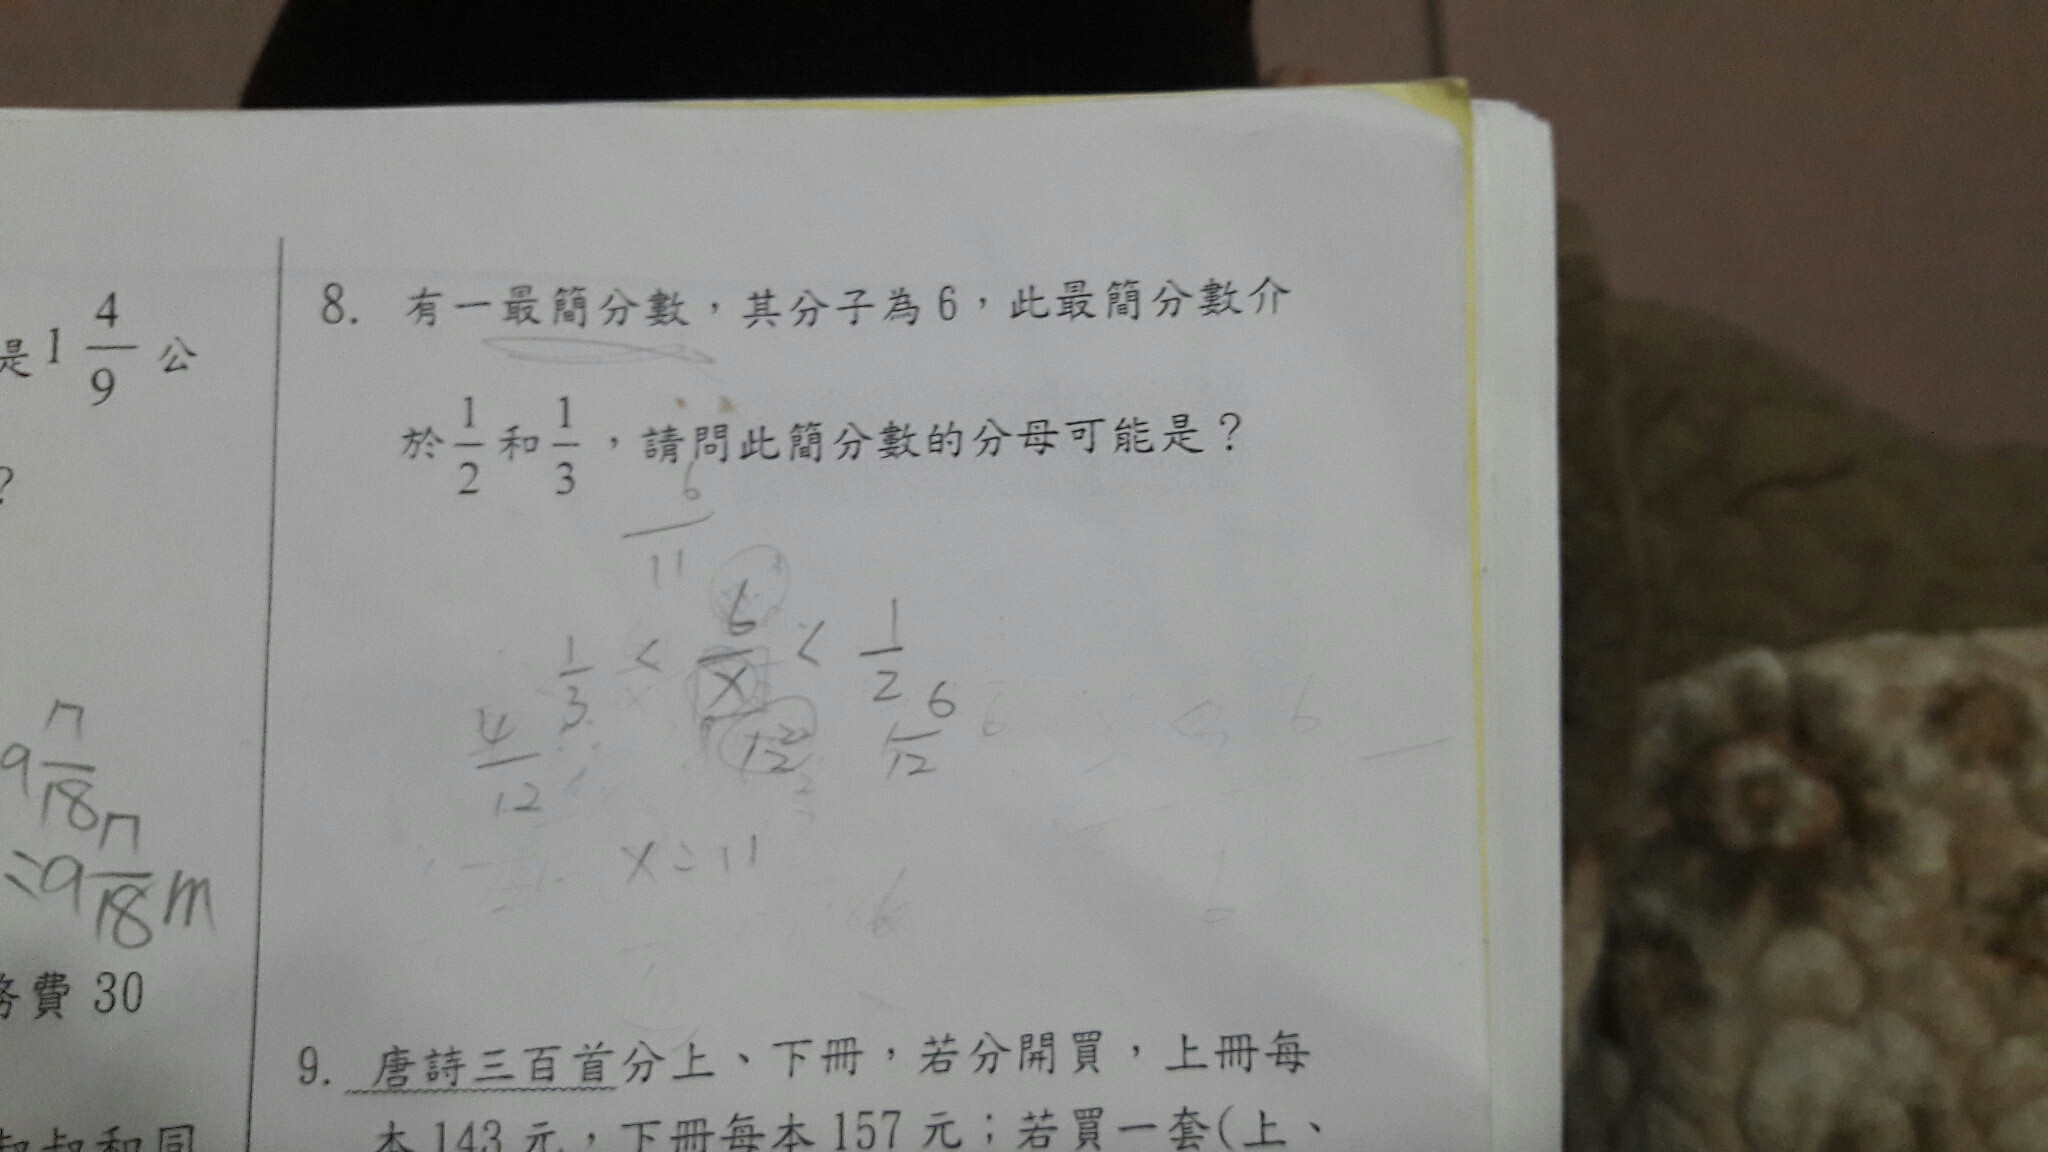 是1 4/9 公
?
9 7/18
=9 7/18 m
費 30
叔叔和同
8. 有一最簡分數，其分子為6，此最簡分數介
於 1/2 和 1/3 ，請問此簡分數的分母可能是？
6/11
1/3 < 6/x < 1/2
4/12 12 6/12
x=11
6
9. 唐詩三百首分上、下冊，若分開買，上冊每
本143元，下冊每本157元；若買一套(上、